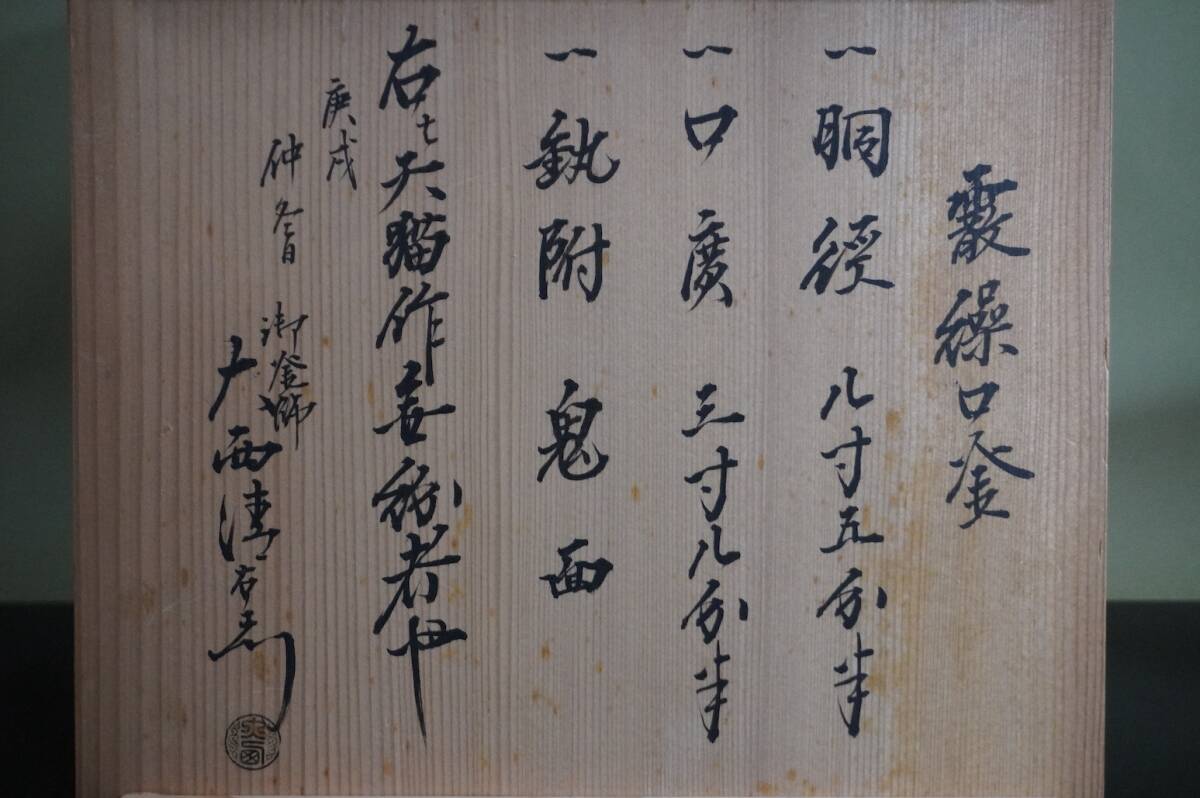 霰繰口釜
一胴径 八寸五分半
一口廣 三寸八分半
一釻附 鬼面
右七天猫作無紛者也
庚戌
仲冬日
御釜師
大西清右衛門
大西